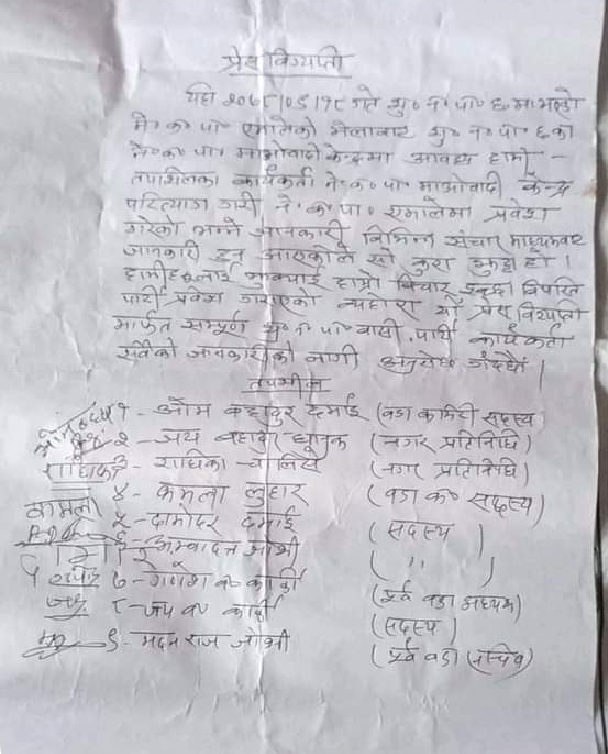 प्रेस विज्ञप्ती
यहि २०७८।०६।१८ गते शु० न० पा० ६ मा
ने० क० पा० एमालेको भेलाबाट शु० न० पा० ६ का
ने० क० पा० माओवादी केन्द्रमा आवद्ध हामी -
तपाशिलका कार्यकर्ता ने० क० पा० माओवादी केन्द्र
परित्याग गरी ने० क० पा० एमालेमा प्रवेश
गरेको भन्ने जानकारी विभिन्न संचार माध्यमबाट
जानकारी हुन आएकोले सो कुरा झुठ्ठा हो ।
हामीहरुलाई झुक्याई हाम्रो विचार इच्छा विपरित
पार्टी प्रवेश गराएको व्यहोरा यो प्रेस विज्ञप्ती
मार्फत सम्पूर्ण शु० न० पा० वासी, पार्टी कार्यकर्ता
सबैको जानकारीको लागी अनुरोध गर्दछौं ।
तपशील
१ - ओम बहादुर दमाई (वडा कमिटी सदस्य)
२ - जय बहादुर धानुक (नगर प्रतिनिधि)
राधिका ३ - राधिका वलिखे (नगर प्रतिनिधि)
४ - कमला लुहार (वडा क० सदस्य)
कमला
५ - दामोदर दमाई (सदस्य)
६ - अम्बादत्त जोशी ( ,, )
७ - गणेश व० कार्की (पूर्व वडा अध्यक्ष)
८ - जय व० कार्की (सदस्य)
९ - मदन राज जोशी (पूर्व वडा सचिव)